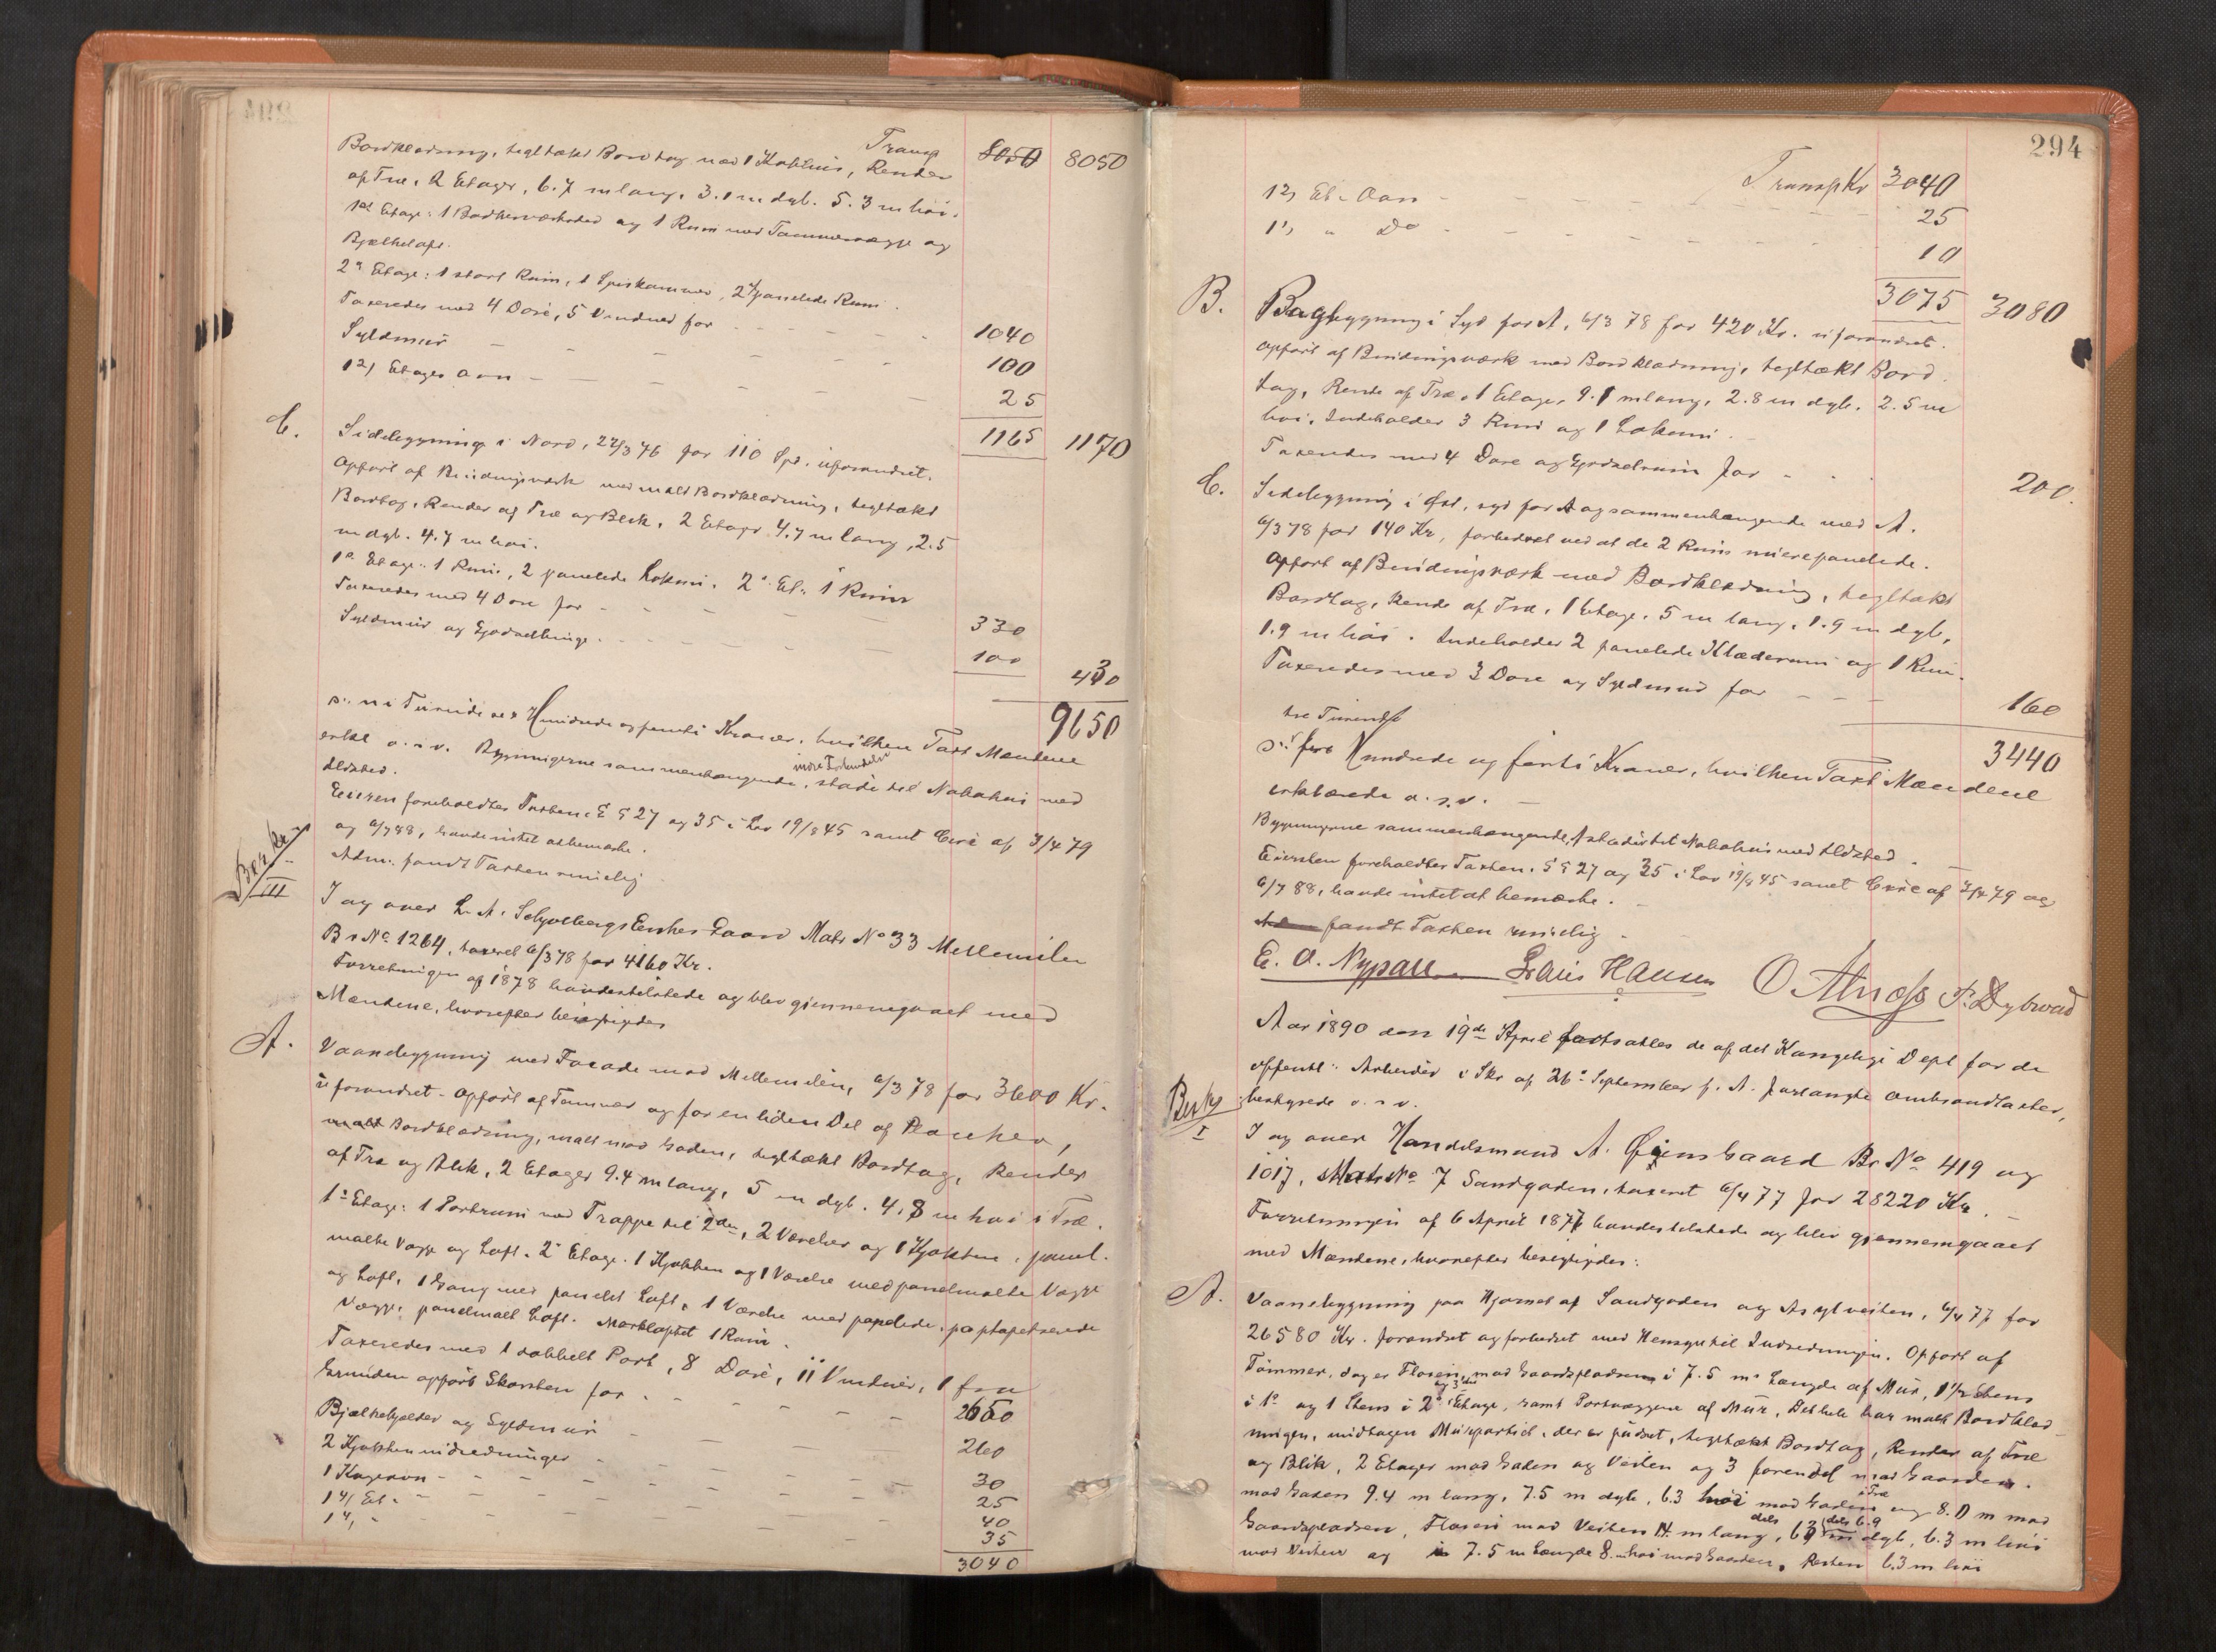 Transp 8050 8050
Bordklædning, tegltækt Bordtag med 1 Kobbhus, Render
af Træ, 2 Etager, 6.7 m lang, 3.1 m dyb. 5.3 m høi.
1ste Etage: 1 Bødkerværksted og 1 Rum med Tømmervægge og
Bjælkeloft.
2n Etage: 1 stort Rum, 1 Spiskammer, 2 panelede Rum.
Taxeredes med 4 Døre, 5 Vinduer for - - - 1040
Syldmur - - - - - 100
1 2/ Etages Ovn - - - - - 25
1165 1170
C. Sidebygning i Nord, 27/3 76 for 110 Spd. uforandret.
Opført af Bindingsværk med malt Bordklædning, tegltækt
Bordtag, Render af Træ og Blik, 2 Etager 4.7 m lang, 2.5
m dyb. 4.7 m høi.
1e Etage: 1 Rum, 2 panelede Lokum. 2n Et: 1 Rum
Taxeredes med 4 Døre for - - - - 330
Syldmur og Gjødselbinge - - - - 100
430
9650
o: ni Tusinde sex Hundrede og femti Kroner, hvilken Taxt Mændene
erkl o. s. v. Bygningerne sammenhængende, støde til Nabohus med
indre Forbindelse
Ildsted.
Eieren foreholdtes Taxten, § § 27 og 35 i Lov 19/8 45 samt Circ af 3/4 79
og 6/7 88, havde intet at bemærke.
Adm. fandt Taxten rimelig
Berke
III
I og over L. A. Schjølbergs Enkes Gaard Matr No 33 Mellemilen
Br No 1264, taxeret 6/3 78 for 4160 Kr.
Forretningen af 1878 havdes tilstede og blev gjennemgaaet med
Mændene, hvorefter besigtigedes
A. Vaanebygning med Facade mod Mellemilen, 6/3 78 for 3600 Kr.
uforandret - Opført af Tømmer og for en liden Del af Planker,
malt Bordklædning, malt mod Gaden, tegltækt Bordtag, Render
af Træ og Blik, 2 Etager 9.4 m lang, 5 m dyb. 4.8 m høi i Træ.
1e Etage: 1 Portrum med Trappe til 2den, 2 Værelser og 1 Kjøkken, panel-
malte Vægge og Loft. 2n Etage. 1 Kjøkken og 1 Værelse med panelmalte Vægge
og Loft, 1 Gang med panelet Loft, 1 Værelse med panelede, paptapetserede
Vægge, panelmalt Loft. Mørkloftet 1 Rum.
Taxeredes med 1 dobbelt Port, 8 Døre, 11 Vinduer, 1 fra
Grunden opført Skorsten for - - - - 2650
Bjælkekjelder og Syldmur - - - - 260
2 Kjøkkenindredninger - - - - 30
1 Kogeovn - - - - - 25
1 4/ Et. - - - - - 40
1 4/ - - - - - 35
3040
294
Transp Kr 3040
1 2/ Et. Ovn - - - - - 25
1 1/ " Do - - - - - 10
3075 3080
B. Bagbygning i Syd for A, 6/3 78 for 420 Kr. uforandret.
Opført af Bindingsværk med Bordklædning, tegltækt Bord
tag, Rende af Træ, 1 Etage, 9.1 m lang, 2.8 m dyb. 2.5 m
høi, Indeholder 3 Rum og 1 Lokum.
Taxeredes med 4 Døre og Gjødselrum for - - 200.
C. Sidebygning i Øst, syd for A og sammenhængende med A.
6/3 78 for 140 Kr, forbedret ved at de 2 Rum nu ere panelede.
Opført af Bindingsværk med Bordklædning, tegltækt
Bordtag, Rende af Træ, 1 Etage, 5 m lang, 1.9 m dyb,
1.9 m høi. Indeholder 2 panelede Klæderum og 1 Rum.
Taxeredes med 3 Døre og Syldmur for - - - 160
3440
tre Tusinde
o: fire Hundrede og førti Kroner, hvilken Taxt Mændene
erklærede o. s. v.
Bygningerne sammenhængende, A støder til Nabohus med Ildsted.
Eiersken foreholdtes Taxten, § § 27 og 35 i Lov 19/8 45 samt Circ af 3/4 79 og
6/7 88, havde intet at bemærke.
fandt Taxten rimelig.
E. O. Nypan Lauis Hansen O Alnæss P. Dybwad
Aar 1890 den 19de April fortsattes de af det Kongelige Dept for de
offentl. Arbeider i Skr af 26e September f. A. forlangte Ombrandtaxter,
bestyrede o. s. v.
Berke
I
I og over Handelsmand A. Øiens Gaard Br No 419 og
1017, Matr No 7 Sandgaden, taxeret 6/4 77 for 28220 Kr. -
Forretningen af 6 April 1877 havdes tilstede og blev gjennemgaaet
med Mændene, hvorefter besigtigedes:
A. Vaanebygning paa Hjørnet af Sandgaden og Asylveiten, 6/4 77 for
26580 Kr. forandret og forbedret med Hensyn til Indredningen. Opført af
Tømmer, dog er Fløien mod Gaardspladsen i 7.5 m Længde af Mur, 1 1/2 Stens
i 1e og 1 Stens i 2n og 3die Etage, samt Portvæggene af Mur, Det hele har malt Bordklæd
ningen, undtagen Murpartiet, der er pudset, tegltækt Bordtag, Render af Træ
og Blik, 2 Etager mod Gaden og Veiten og 3 forendel mod Gaarden.
mod Gaden 9.4 m lang, 7.5 m dyb, 6.3 høi mod Gaden i Træ og 8.0 m mod
Gaardspladsen, Fløien mod Veiten 14 m lang, dels 6.2 dels 6.9 m dyb, 6.3 m høi
mod Veiten og i 7.5 m Længde 8 m høi mod Gaarden, Resten 6.3 m høi